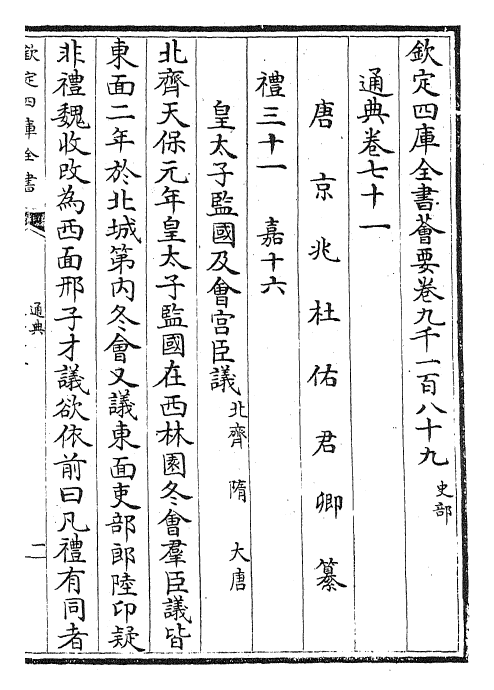 欽定四庫全書薈要卷九千一百八十九 史部
通典卷七十一
唐京兆杜佑君卿纂
禮三十一 嘉十六
皇太子監國及會宮臣議 北齊 隋 大唐
北齊天保元年皇太子監國在西林園冬會羣臣議皆
東面二年於北城第內冬會又議東面吏部郎陸卬疑
非禮魏收改為西面邢子才議欲依前曰凡禮有同者
欽定四庫全書
通典